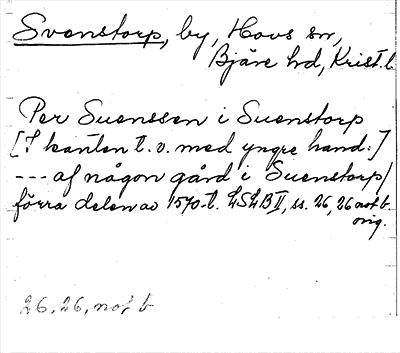 Svenstorp, by, Hovs sn,
Bjäre hd, Krist. l.
Per Suenssen i Suenstorp
[I kanten t. v. med yngre hand:]
--- af någon gård i Suenstorp/
förra delen av 1570-t. LSLB II, ss. 26, 26 not b
orig.
26, 26, not b